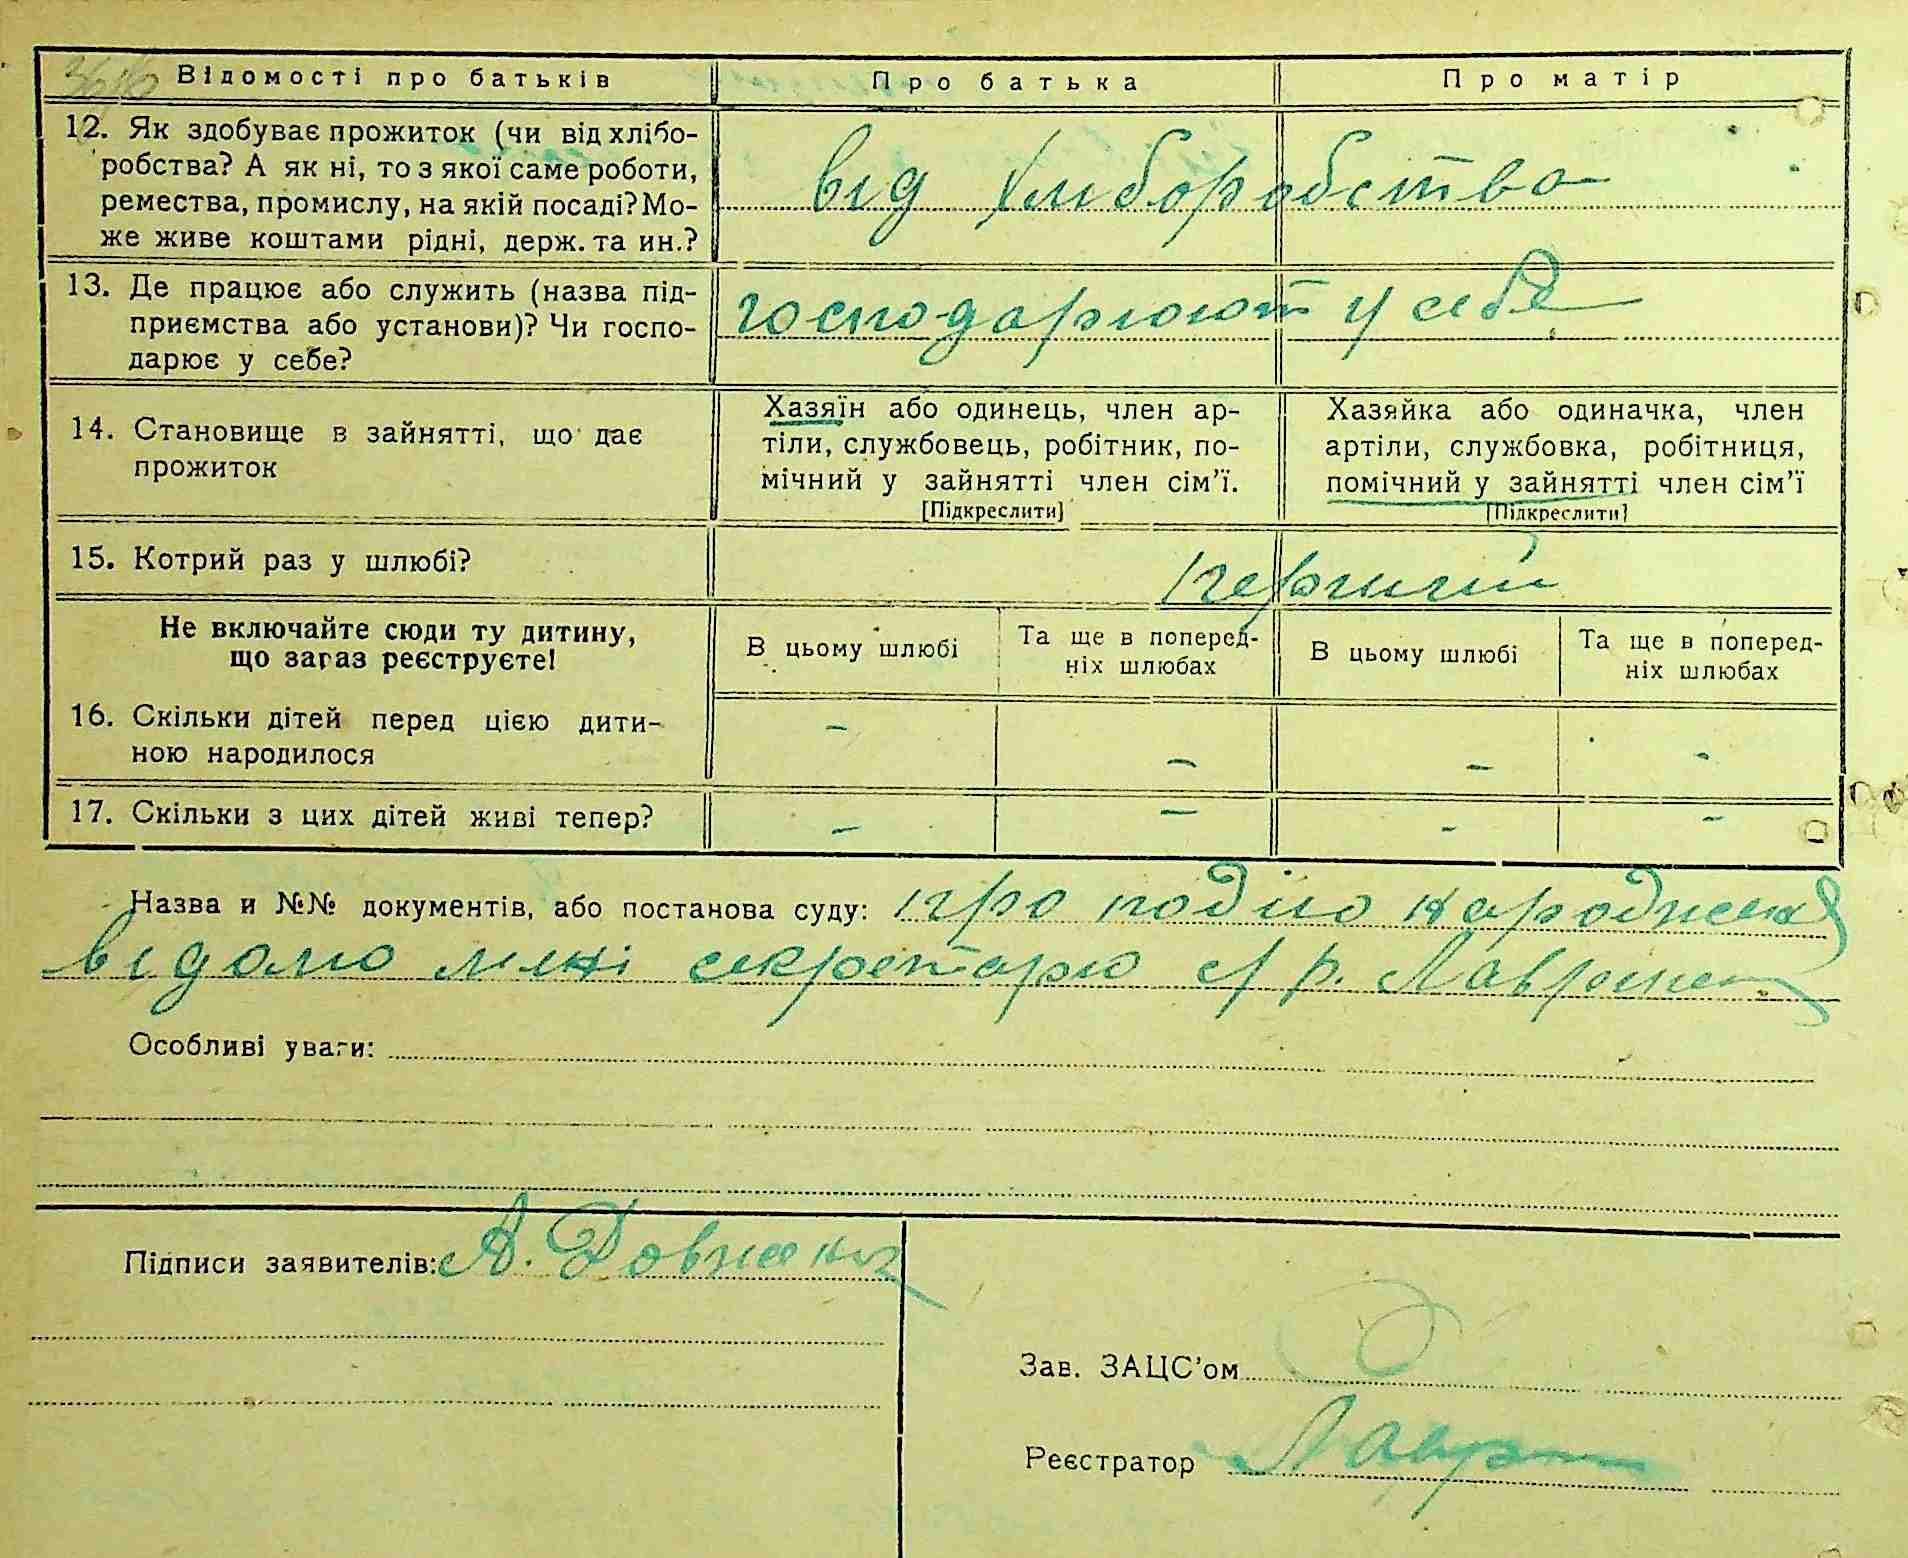 Відомості про батьків Про батька Про матір
12. Як здобуває прожиток (чи від хлібо-
робства? А як ні, то з якої саме роботи,
ремества, промислу, на якій посаді? Мо-
же живе коштами рідні, держ. та ин.?
від хліборобства
13. Де працює або служить (назва під-
приємства або установи)? Чи госпо-
дарює у себе?
господарюют у себе
14. Становище в зайнятті, що дає
прожиток
Хазяїн або одинець, член ар-
тіли, службовець, робітник, по-
мічний у зайнятті член сім'ї.
[Підкреслити]
Хазяйка або одиначка, член
артіли, службовка, робітниця,
помічний у зайнятті член сім'ї
[Підкреслити]
15. Котрий раз у шлюбі?
перший
Не включайте сюди ту дитину,
що загаз реєструєте!
В цьому шлюбі
Та ще в поперед-
ніх шлюбах
В цьому шлюбі
Та ще в поперед-
ніх шлюбах
16. Скільки дітей перед цією дити-
ною народилося
– – – –
17. Скільки з цих дітей живі тепер?
– – – –
Назва и №№ документів, або постанова суду: про подію народження
відомо мені секретарю с/р.
Особливі уваги:
Підписи заявителів: А. Довженк
Зав. ЗАЦС'ом
Реєстратор